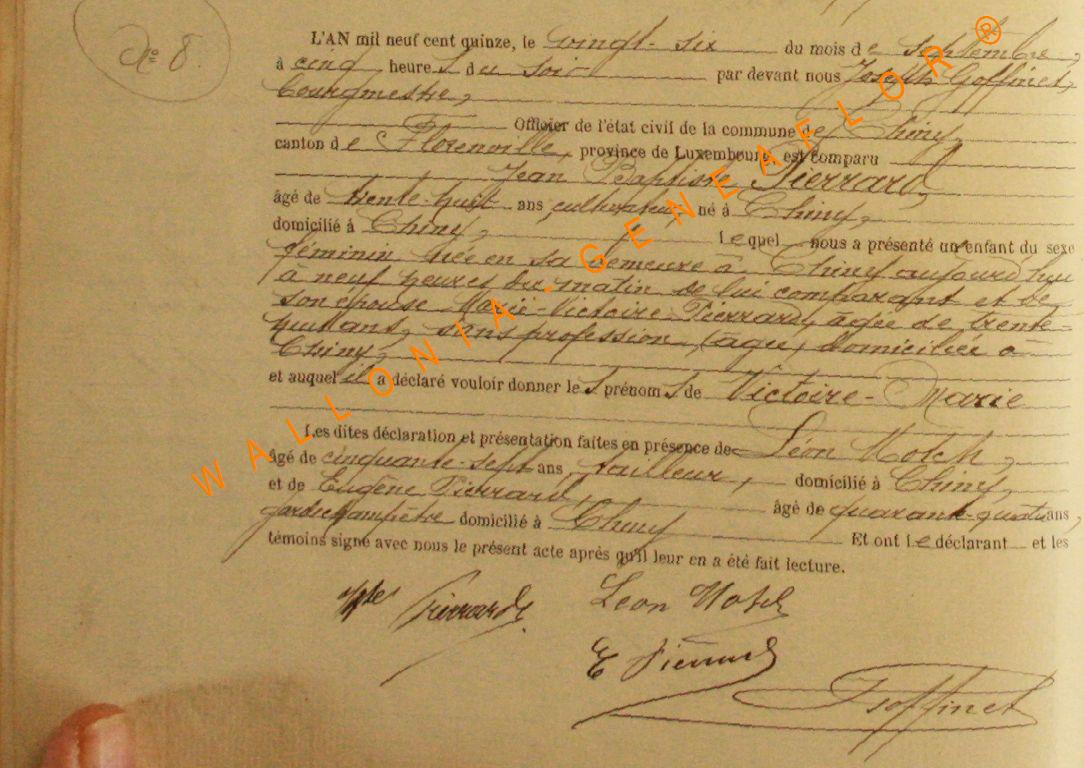 No 8.
L'AN mil neuf cent quinze, le vingt-six du mois de septembre,
à cinq heures du soir par devant nous Joseph Goffinet,
bourgmestre,
Officier de l'état civil de la commune de Chiny,
canton de Florenville, province de Luxembourg, est comparu
Jean Baptiste Pierrard,
âgé de trente-huit ans, cultivateur, né à Chiny,
domicilié à Chiny, Lequel nous a présenté un enfant du sexe
féminin née en sa demeure à Chiny aujourd'hui
à neuf heures du matin de lui comparant et de
son épouse Marie-Victoire Pierrard, âgée de trente-
huit ans, sans profession, domiciliée à
Chiny,
et auquel il a déclaré vouloir donner les prénoms de Victoire-Marie
Les dites déclaration et présentation faites en présence de Léon
âgé de cinquante-sept ans, tailleur, domicilié à Chiny,
et de Eugène Pierrard, âgé de quarante-quatre ans,
garde champêtre domicilié à Chiny Et ont le déclarant et les
témoins signé avec nous le présent acte après qu'il leur en a été fait lecture.
Pierrard
Léon
E Pierrard
J Goffinet
WALLONIA-GENEAFLOR®